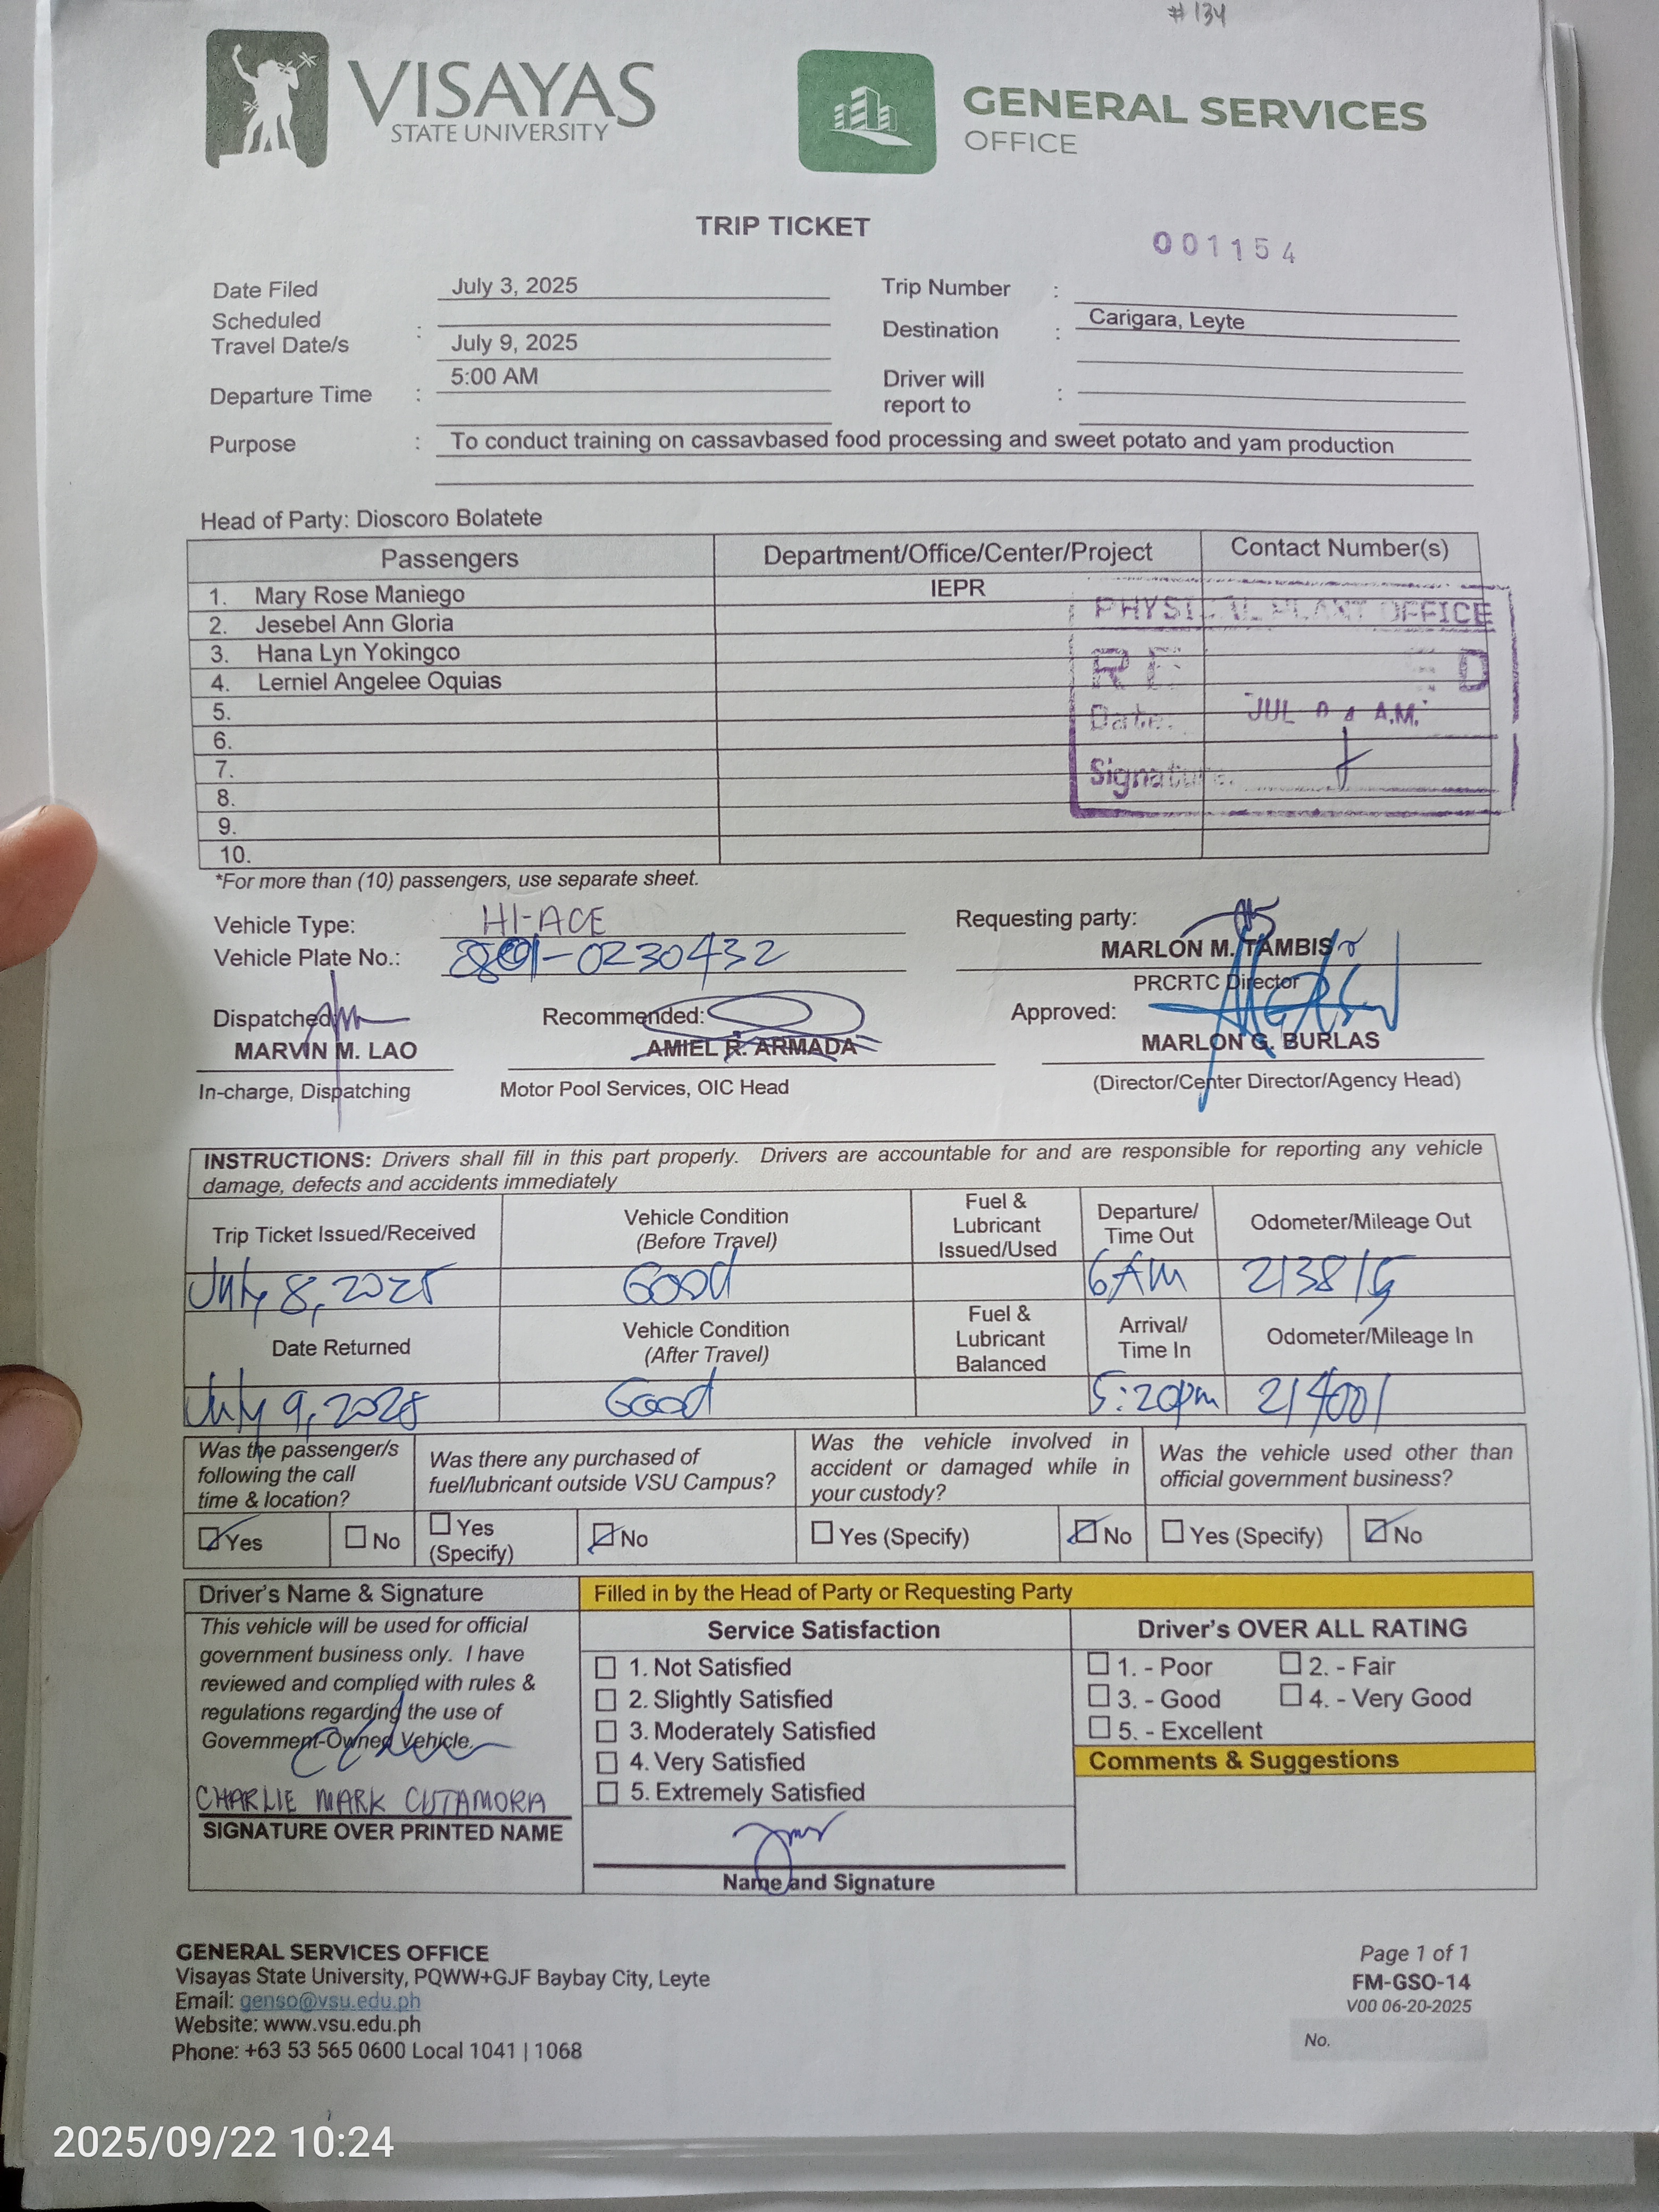 # 134
VISAYAS
STATE UNIVERSITY
GENERAL SERVICES
OFFICE
TRIP TICKET
001154
Date Filed July 3, 2025
Trip Number :
Scheduled
Travel Date/s : July 9, 2025
Destination : Carigara, Leyte
Departure Time : 5:00 AM
Driver will
report to :
Purpose : To conduct training on cassavbased food processing and sweet potato and yam production
Head of Party: Dioscoro Bolatete
Passengers Department/Office/Center/Project Contact Number(s)
1. Mary Rose Maniego IEPR
2. Jesebel Ann Gloria
3. Hana Lyn Yokingco
4. Lerniel Angelee Oquias
5.
6.
7.
8.
9.
10.
PHYSICAL PLANT OFFICE
Date:
JUL A.M.
Signature:
*For more than (10) passengers, use separate sheet.
Vehicle Type: HI-ACE
Vehicle Plate No.: -0230432
Requesting party:
MARLON M. TAMBIS
PRCRTC Director
Dispatched:
MARVIN M. LAO
In-charge, Dispatching
Recommended:
AMIEL R. ARMADA
Motor Pool Services, OIC Head
Approved:
MARLON G. BURLAS
(Director/Center Director/Agency Head)
INSTRUCTIONS: Drivers shall fill in this part properly. Drivers are accountable for and are responsible for reporting any vehicle
damage, defects and accidents immediately
Trip Ticket Issued/Received
Vehicle Condition
(Before Travel)
Fuel &
Lubricant
Issued/Used
Departure/
Time Out
Odometer/Mileage Out
July 8, 2025 Good 6AM 213815
Date Returned
Vehicle Condition
(After Travel)
Fuel &
Lubricant
Balanced
Arrival/
Time In
Odometer/Mileage In
July 9, 2025 Good 5:20pm 214001
Was the passenger/s
following the call
time & location?
Was there any purchased of
fuel/lubricant outside VSU Campus?
Was the vehicle involved in
accident or damaged while in
your custody?
Was the vehicle used other than
official government business?
Yes No
Yes
(Specify)
No
Yes (Specify) No
Yes (Specify) No
Driver's Name & Signature
This vehicle will be used for official
government business only. I have
reviewed and complied with rules &
regulations regarding the use of
Government-Owned Vehicle.
CHARLIE MARK CUTAMORA
SIGNATURE OVER PRINTED NAME
Filled in by the Head of Party or Requesting Party
Service Satisfaction
1. Not Satisfied
2. Slightly Satisfied
3. Moderately Satisfied
4. Very Satisfied
5. Extremely Satisfied
Name and Signature
Driver's OVER ALL RATING
1. - Poor 2. - Fair
3. - Good 4. - Very Good
5. - Excellent
Comments & Suggestions
GENERAL SERVICES OFFICE
Visayas State University, PQWW+GJF Baybay City, Leyte
Email: genso@vsu.edu.ph
Website: www.vsu.edu.ph
Phone: +63 53 565 0600 Local 1041 | 1068
Page 1 of 1
FM-GSO-14
V00 06-20-2025
No.
2025/09/22 10:24